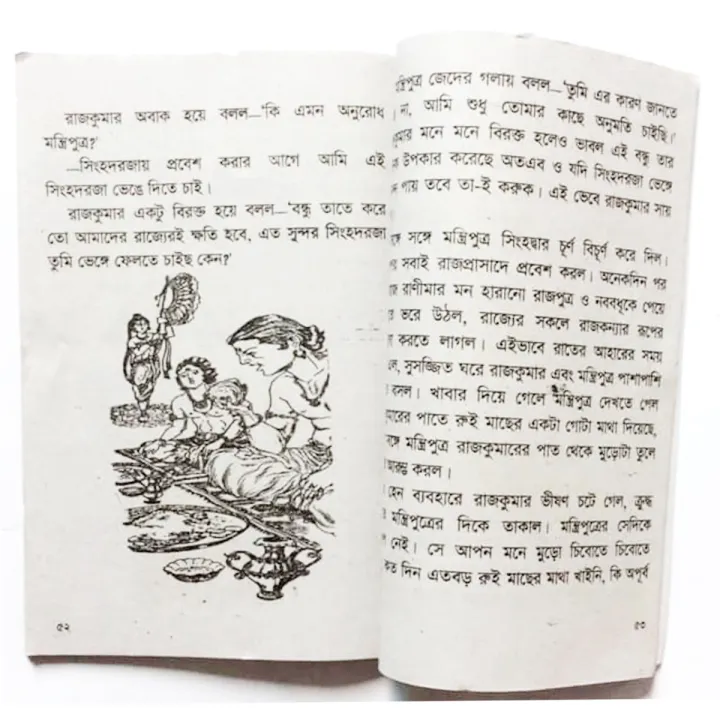 রাজকুমার অবাক হয়ে বলল—‘কি এমন অনুরোধ
মন্ত্রিপুত্র?’
—সিংহদরজায় প্রবেশ করার আগে আমি এই
সিংহদরজা ভেঙে দিতে চাই।
রাজকুমার একটু বিরক্ত হয়ে বলল—‘বন্ধু তাতে করে
তো আমাদের রাজ্যেরই ক্ষতি হবে, এত সুন্দর সিংহদরজা
তুমি ভেঙ্গে ফেলতে চাইছ কেন?’
৫২
জেদের গলায় বলল—‘তুমি এর কারণ জানতে
না, আমি শুধু তোমার কাছে অনুমতি চাইছি।’
মনে মনে বিরক্ত হলেও ভাবল এই বন্ধু তার
উপকার করেছে অতএব ও যদি সিংহদরজা ভেঙ্গে
পায় তবে তা-ই করুক। এই ভেবে রাজকুমার সায়
সঙ্গে মন্ত্রিপুত্র সিংহদ্বার চূর্ণ বিচূর্ণ করে দিল।
সবাই রাজপ্রাসাদে প্রবেশ করল। অনেকদিন পর
রাণীমার মন হারানো রাজপুত্র ও নববধূকে পেয়ে
ভরে উঠল, রাজ্যের সকলে রাজকন্যার রূপের
করতে লাগল। এইভাবে রাতের আহারের সময়
সুসজ্জিত ঘরে রাজকুমার এবং মন্ত্রিপুত্র পাশাপাশি
বসল। খাবার দিয়ে গেলে মন্ত্রিপুত্র দেখতে গেল
পাতে রুই মাছের একটা গোটা মাথা দিয়েছে,
মন্ত্রিপুত্র রাজকুমারের পাত থেকে মুড়োটা তুলে
করল।
হেন ব্যবহারে রাজকুমার ভীষণ চটে গেল, ক্রুদ্ধ
মন্ত্রিপুত্রের দিকে তাকাল। মন্ত্রিপুত্রের সেদিকে
নেই। সে আপন মনে মুড়ো চিবোতে চিবোতে
দিন এতবড় রুই মাছের মাথা খাইনি, কি অপূর্ব
৫৩